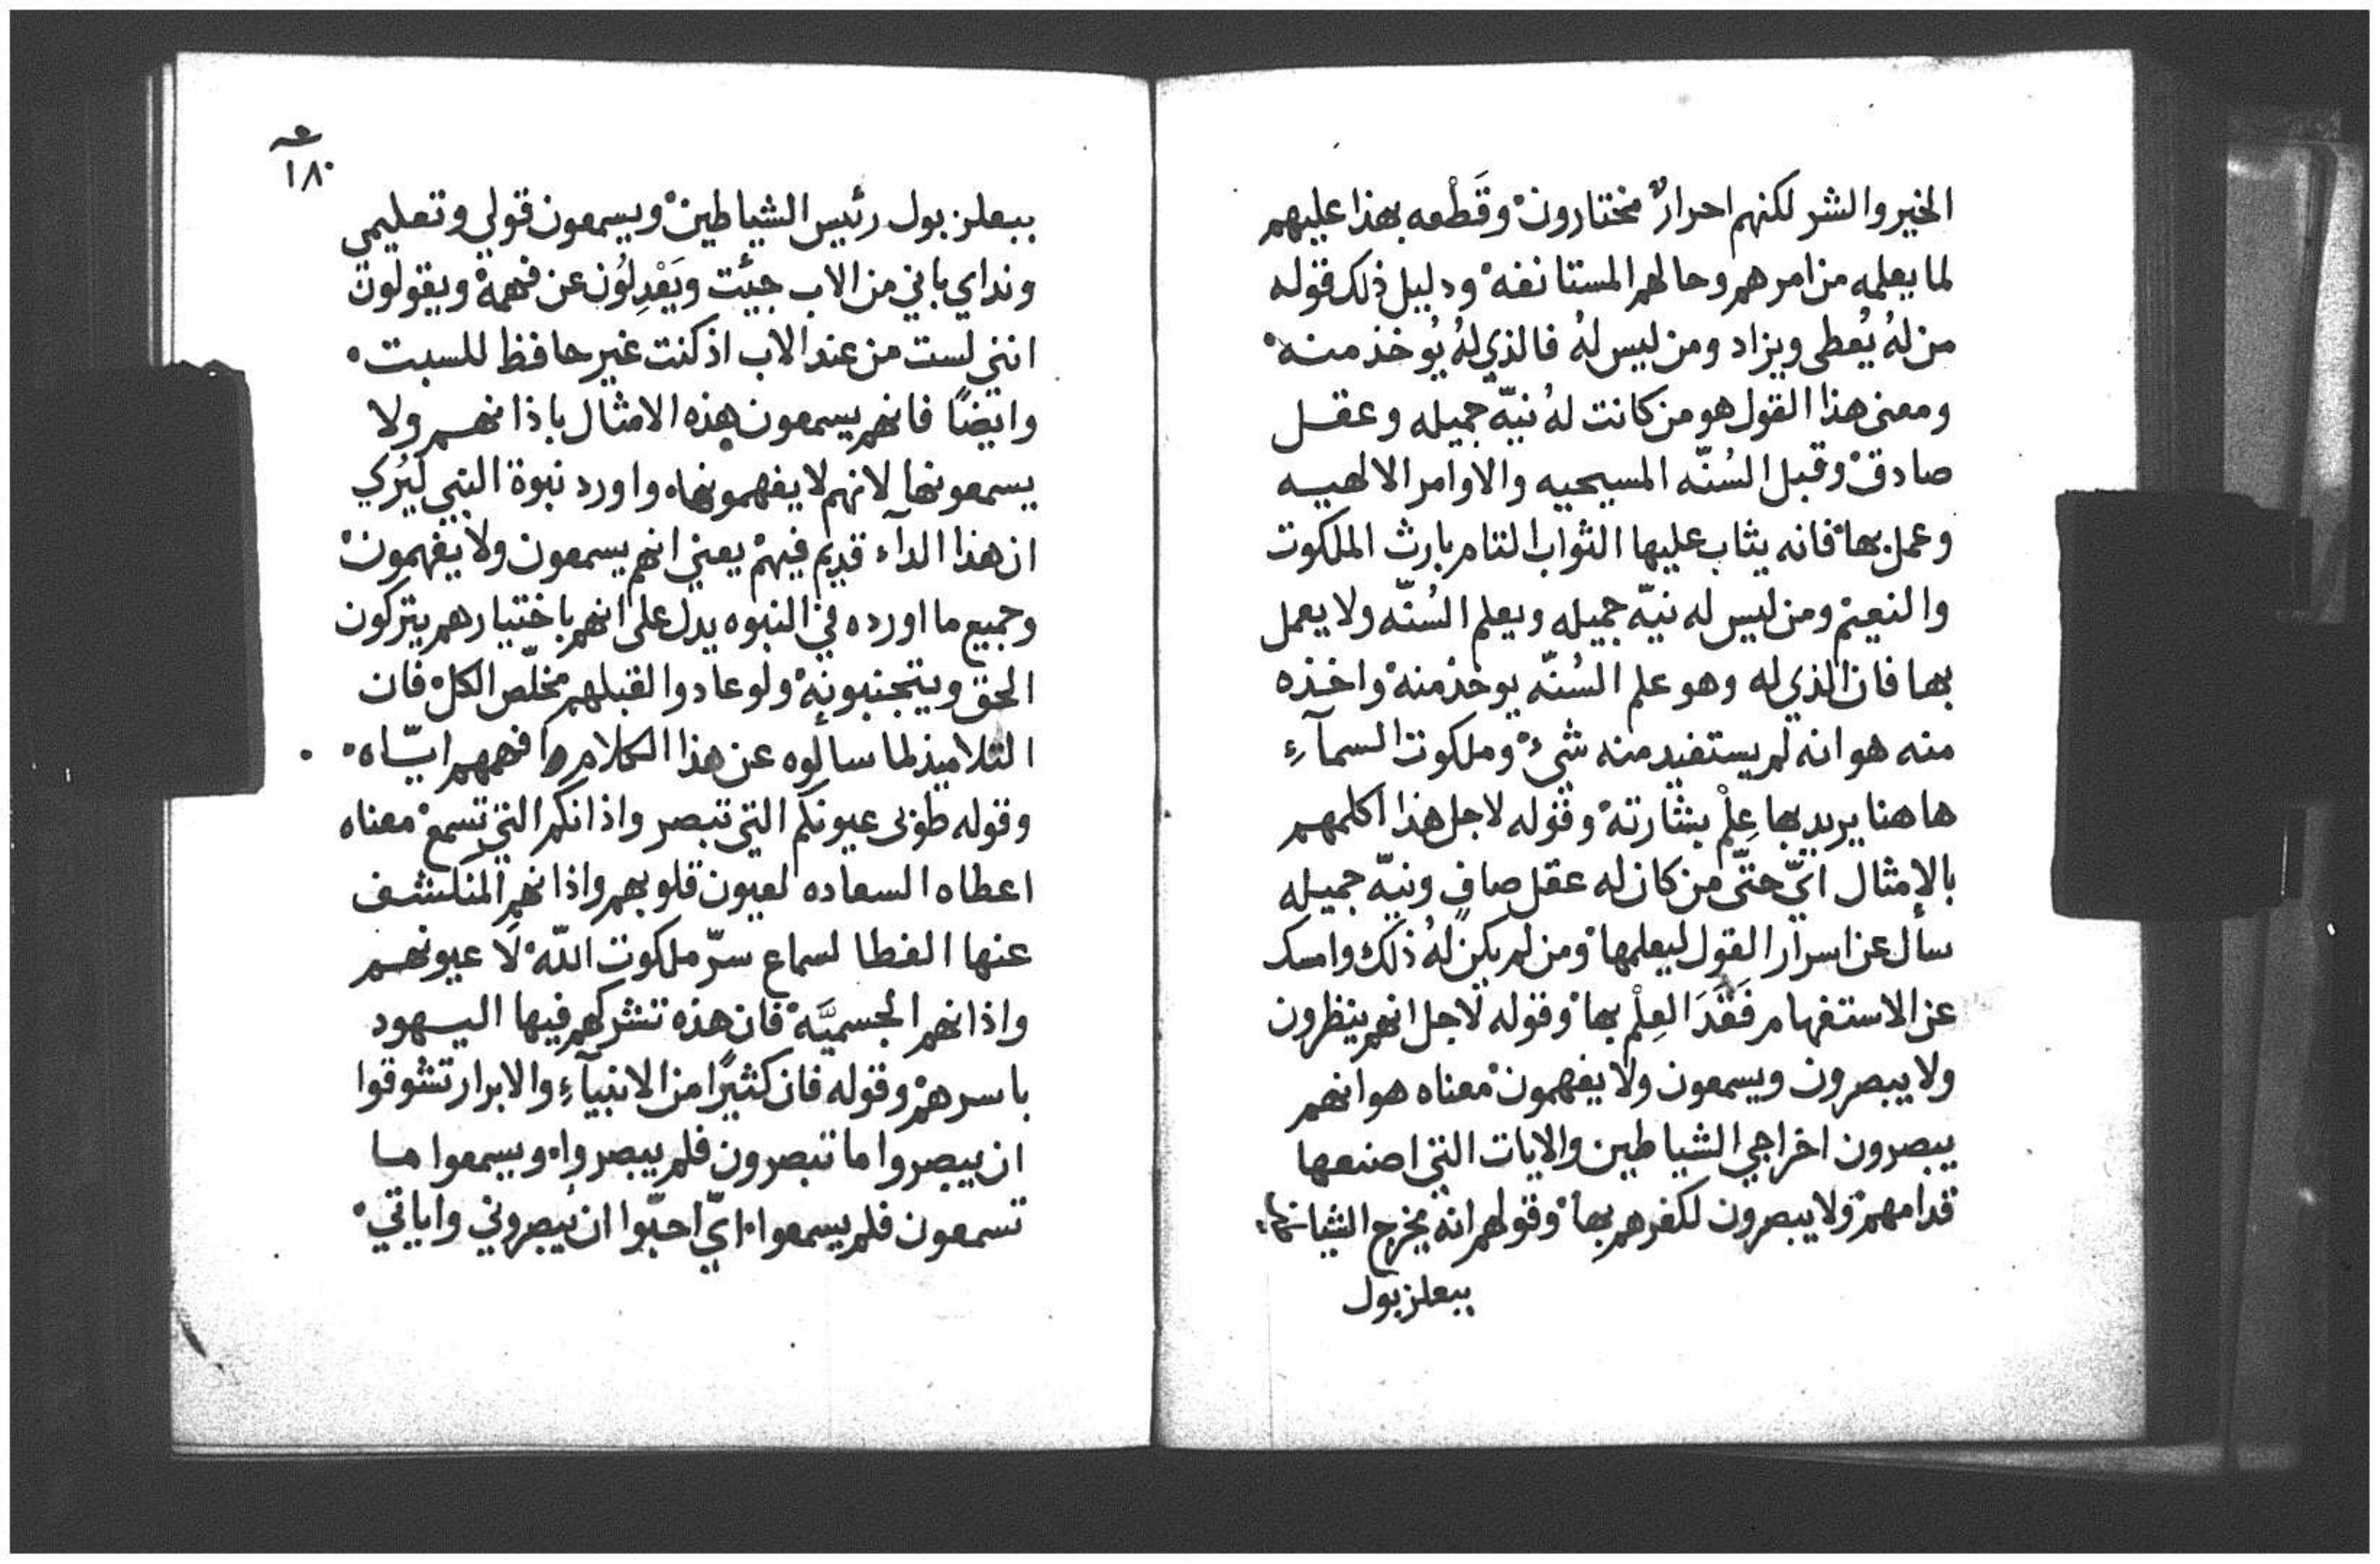 الخير والشر لكنهم احرارٌ مختارون ْ وقَطْعه بهذا عليهم
لما يعلمه من امرهم وحالهم المستانفه ْ ودليل ذلك قوله
من لهُ يُعطى ويزاد ومن ليس لهُ فالذي لهُ يُوخذ منه ْ
ومعنى هذا القول هو من كانت لهُ نيّه جميله وعقل
صادق ْ وقبل السُنّه المسيحيه والاوامر الالهيه
وعمل بها ْ فانه يثاب عليها الثواب التام بارث الملكوت
والنعيم ْ ومن ليس له نيّه جميله ويعلم السُنّه ولا يعمل
بها فان الذي له وهو علم السُنّه يوخذ منه ْ واخذه
منه هو انه لم يستفيد منه شىءٌ ْ وملكوت السمآءِ
هاهنا يريد بها عِلْم بشارته ْ وقوله لاجل هذا اكلمهم
بالامثال ايّ حتّى من كان له عقل صافٍ ونيّه جميله
سأل عن اسرار القول ليعلمها ْ ومن لم يكن لهُ ذلك وامسك
عن الاستفهام فَقَدَ العِلْم بها ْ وقوله لاجل انهم ينظرون
ولا يبصرون ويسمعون ولا يفهمون ْ معناه هو انهم
يبصرون اخراجي الشياطين والايات التي اصنعها
قدامهم ْ ولا يبصرون لكفرهم بها ْ وقولهم انه يخرج الشياطين
ببعلزبول
١٨٠
ببعلزبول رئيس الشياطين ْ ويسمعون قولي وتعليمي
ونداي باني من الاب جيئت ويَعْدِلُون عن فهمه ْ ويقولون
انني لست من عند الاب اذ كنت غير حافظ للسبت ْ
وايضًا فانهم يسمعون هذه الامثال باذانهم ولا
يسمعونها لانهم لا يفهمونها ه واورد نبوة النبي ليُرى
ان هذا الدآء قديم فيهم ْ يعني انهم يسمعون ولا يفهمون ْ
وجميع ما اورده في النبوه يدل على انهم باختيارهم يتركون
الحق ويتجنبونه ْ ولو عادوا لقبلهم مخلّص الكل ْ فان
التلاميذ لما سالوه عن هذا الكلام افهمهم ايّاه ْ
وقوله طوبى عيونكم التي تبصر واذانكم التي تسمع ْ معناه
اعطاه السعاده لعيون قلوبهم واذانهم المنكشف
عنها الغطا لسماع سرّ ملكوت اللّه ْ لا عيونهم
واذانهم الجسميَّه ْ فان هذه تشركهم فيها اليهود
باسرهم ْ وقوله فان كثيرًا من الانبيآءِ والابرار تشوقوا
ان يبصروا ما تبصرون فلم يبصروا ه ويسمعوا ما
تسمعون فلم يسمعوا ه ايّ احبّوا ان يبصروني واياتي ْ